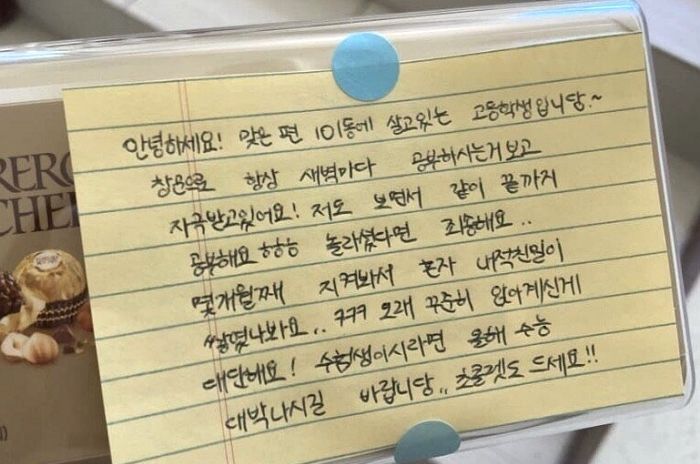 RERO
CHE
안녕하세요! 맞은 편 101동에 살고있는 고등학생입니당.~
창문으로 항상 새벽마다 공부하시는거 보고
자극받고있어요! 저도 보면서 같이 끝까지
공부해요ㅎㅎㅎ 놀라셨다면 죄송해요..
몇개월째 지켜봐서 혼자 내적친밀이
쌓였나봐요.. ㅋㅋㅋ 오래 꾸준히 앉아계신게
대단해요! 수험생이시라면 올해 수능
대박나시길 바랍니당.. 초콜렛도 드세요!!